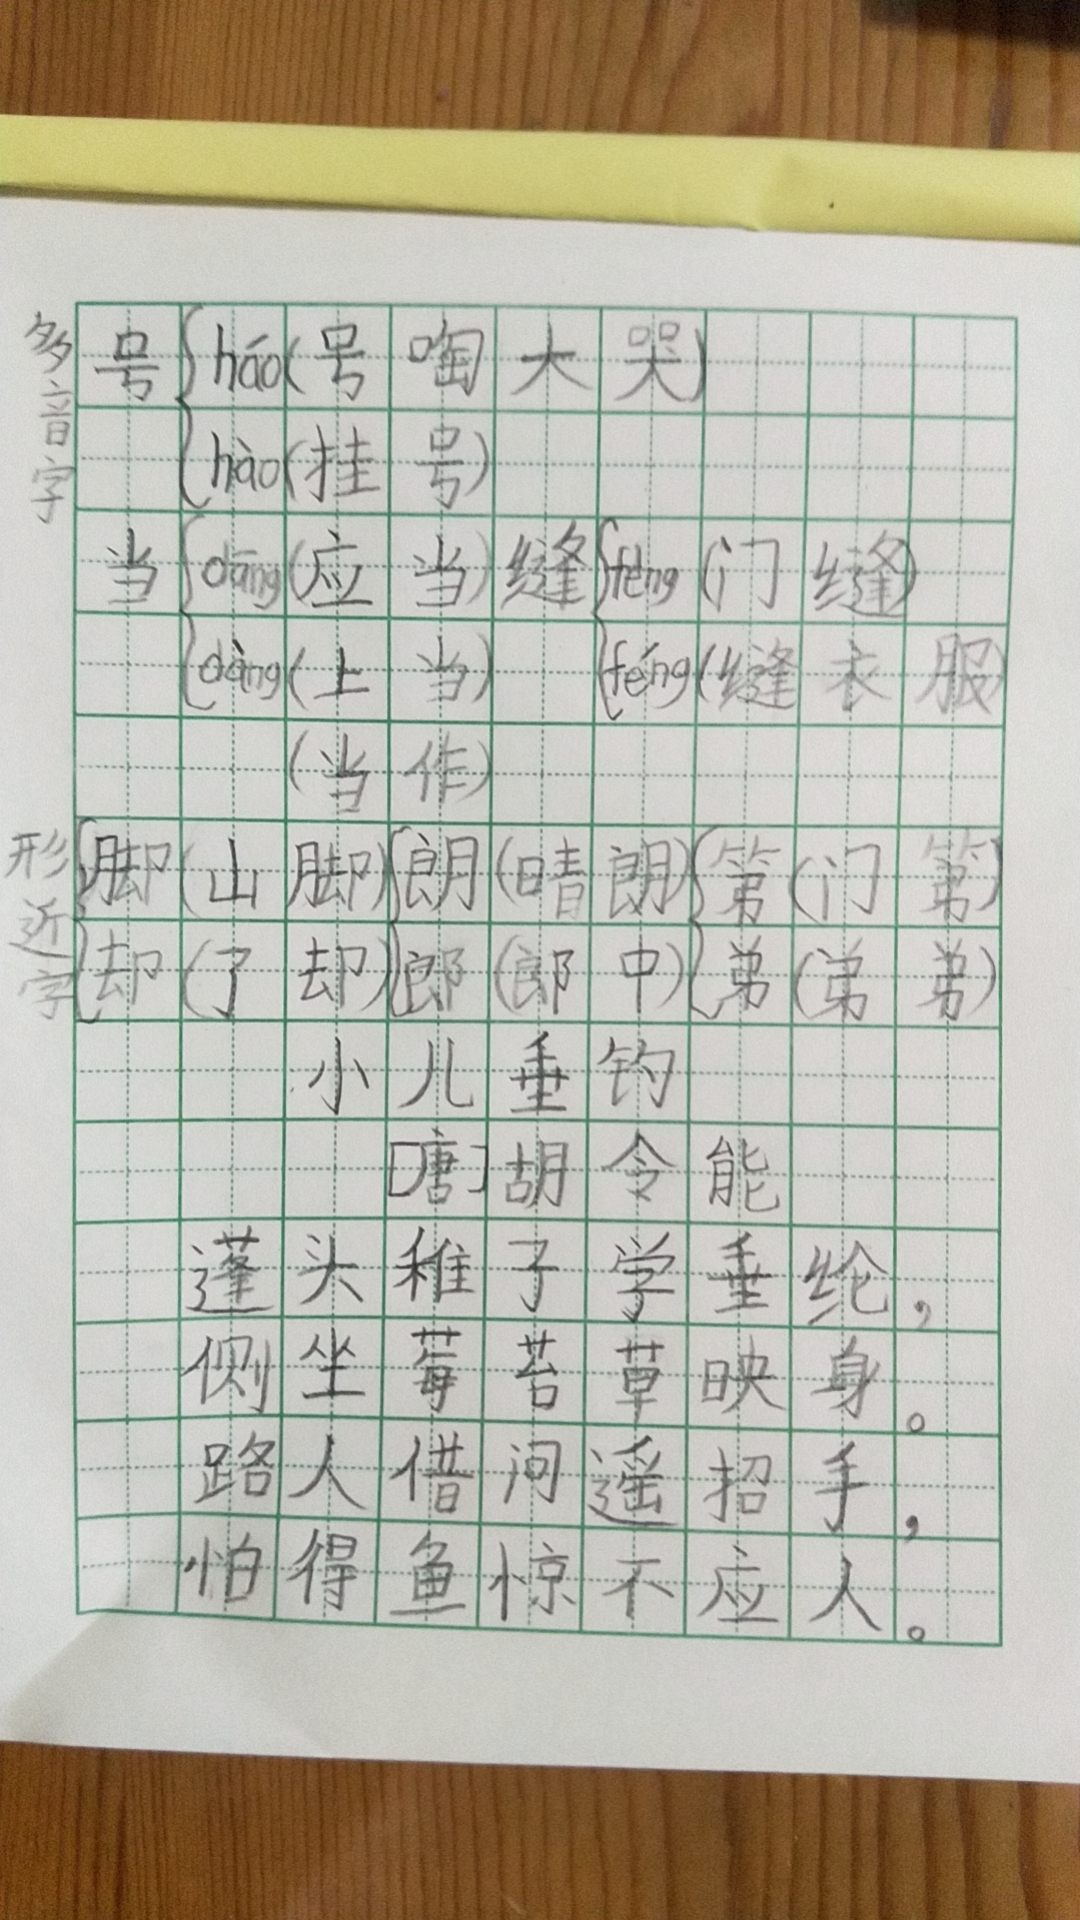 多音字
号{háo(号啕大哭)
hào(挂号)
当{dāng(应当) 缝{fèng(门缝)
dàng(上当) féng(缝衣服)
(当作)
形近字
{脚(山脚) {朗(晴朗) {第(门第)
却(了却) 郎(郎中) 弟(弟弟)
小儿垂钓
[唐]胡令能
蓬头稚子学垂纶,
侧坐莓苔草映身。
路人借问遥招手,
怕得鱼惊不应人。